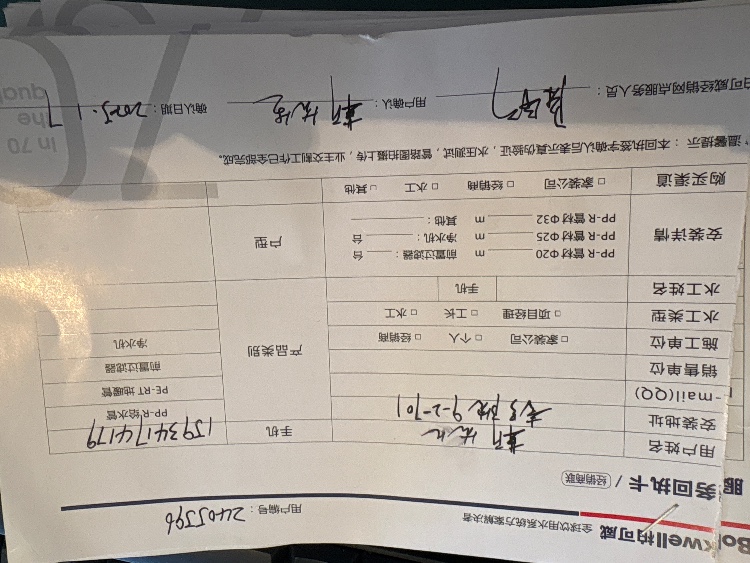 Bo kwell柏可威 全球饮用水系统方案解决者
用户编号：2405596
服务回执卡 / 经销商联
用户姓名 手机 15934174179
安装地址 9-2-701
-mail(QQ)
销售单位
施工单位 □ 家装公司 □ 个人 □ 经销商
水工类型 □ 项目经理 □ 工长 □ 水工
水工姓名 手机
产品类别
PP-R给水管
PE-RT 地暖管
前置过滤器
净水机
安装详情
PP-R 管材 Φ20 m 前置过滤器： 台
PP-R 管材 Φ25 m 净水机： 台
PP-R 管材 Φ32 m 其他：
户型
购买渠道 □ 家装公司 □ 经销商 □ 水工 □ 其他
温馨提示：本回执签字确认后表示真伪验证，水压测试，管路图拍摄上传，业主交割工作已全部完成。
柏可威经销网点服务人员： 用户确认： 确认日期：2025.1.7
in 70
the
qual